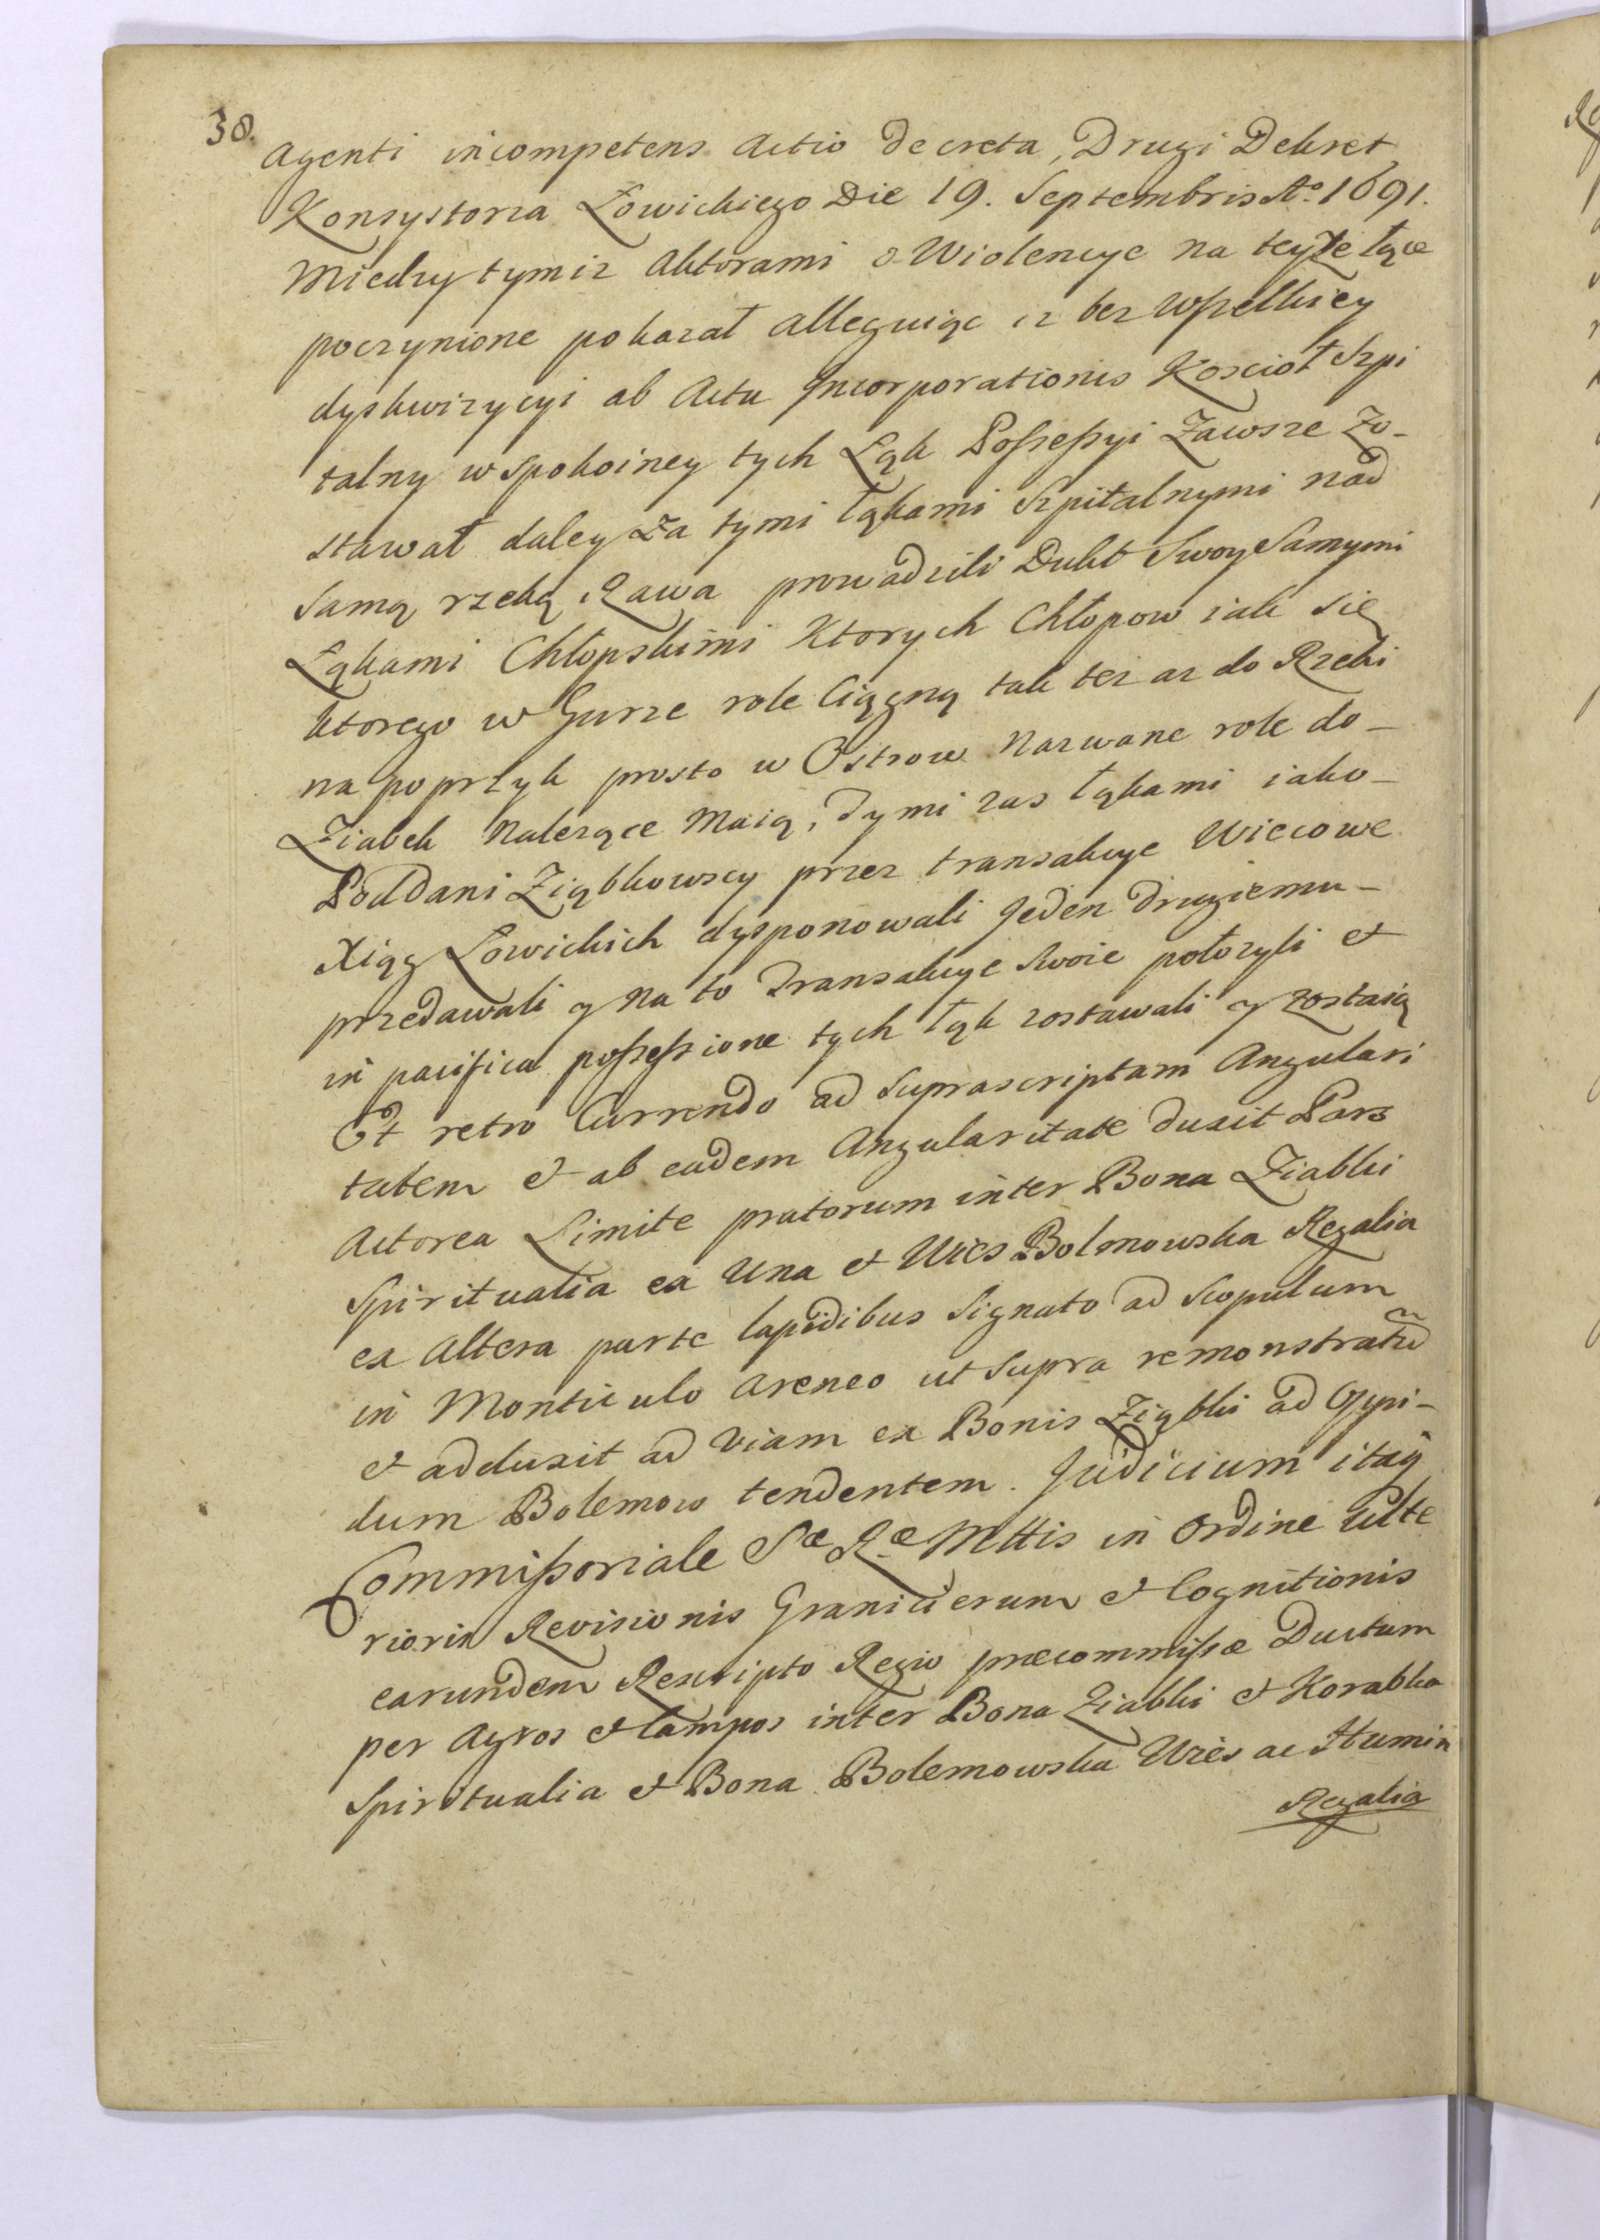 38.
Agenti incompetens Actio decreta, Drugi Dekret
Konsystorza Łowickiego Die 19. Septembris Ao. 1691.
Miedzy tymiz Aktorami o Wiolencye na teyże łące
poczynione pokazał alleguiąc iz bez wszelkiey
dyskwizycyi ab Actu Incorporationis Kosciół Szpi
talny w spokoiney tych Łąk Possessyi Zawsze Zo-
stawał daley za tymi łąkami Szpitalnymi nad
samą rzeką Rawa prowadzili Dukt Swoy Samymi
Łąkami Chłopskimi Ktorych Chłopow iak się
ktorego w Gurze role Ciągną tak tez az do Rzeki
na poprzyk prosto w Ostrow Nazwane role do-
Ziabek Nalezące Maią, Tymi zas łąkami iako-
Poddani Ziąbkowscy przez transakcye Wiecowe
Xiąg Łowickich dysponowali Jeden drugiemu-
przedawali y na to Transakcye Swoie połozyli et
in pacifica possessione tych łąk zostawali y zostaią
Et retro Currendo ad Suprascriptam Angulari
tatem et ab eadem Angularitate duxit Pars
Actorea Limite pratorum inter Bona Ziabki
Spiritualia ex Una et Wies Bolmowska Regalia
ex Altera parte lapidibus Signato ad Scopulum
in Monticulo Areneo ut Supra remonstratũ
et adduxit ad Viam ex Bonis Ziąbki ad Oppi-
dum Bolemow tendentem. Judicium itaq̃
Commissoriale Sæ Ræ Mttis in Ordine Ulte
rioris Revisionis Granicierum et Cognitionis
earundem Rescripto Regio præcommissæ Ductum
per Agros et Campos inter Bona Ziabki et Korabka
Spiritualia et Bona Bolemowska Wies ac Humin
Regalia